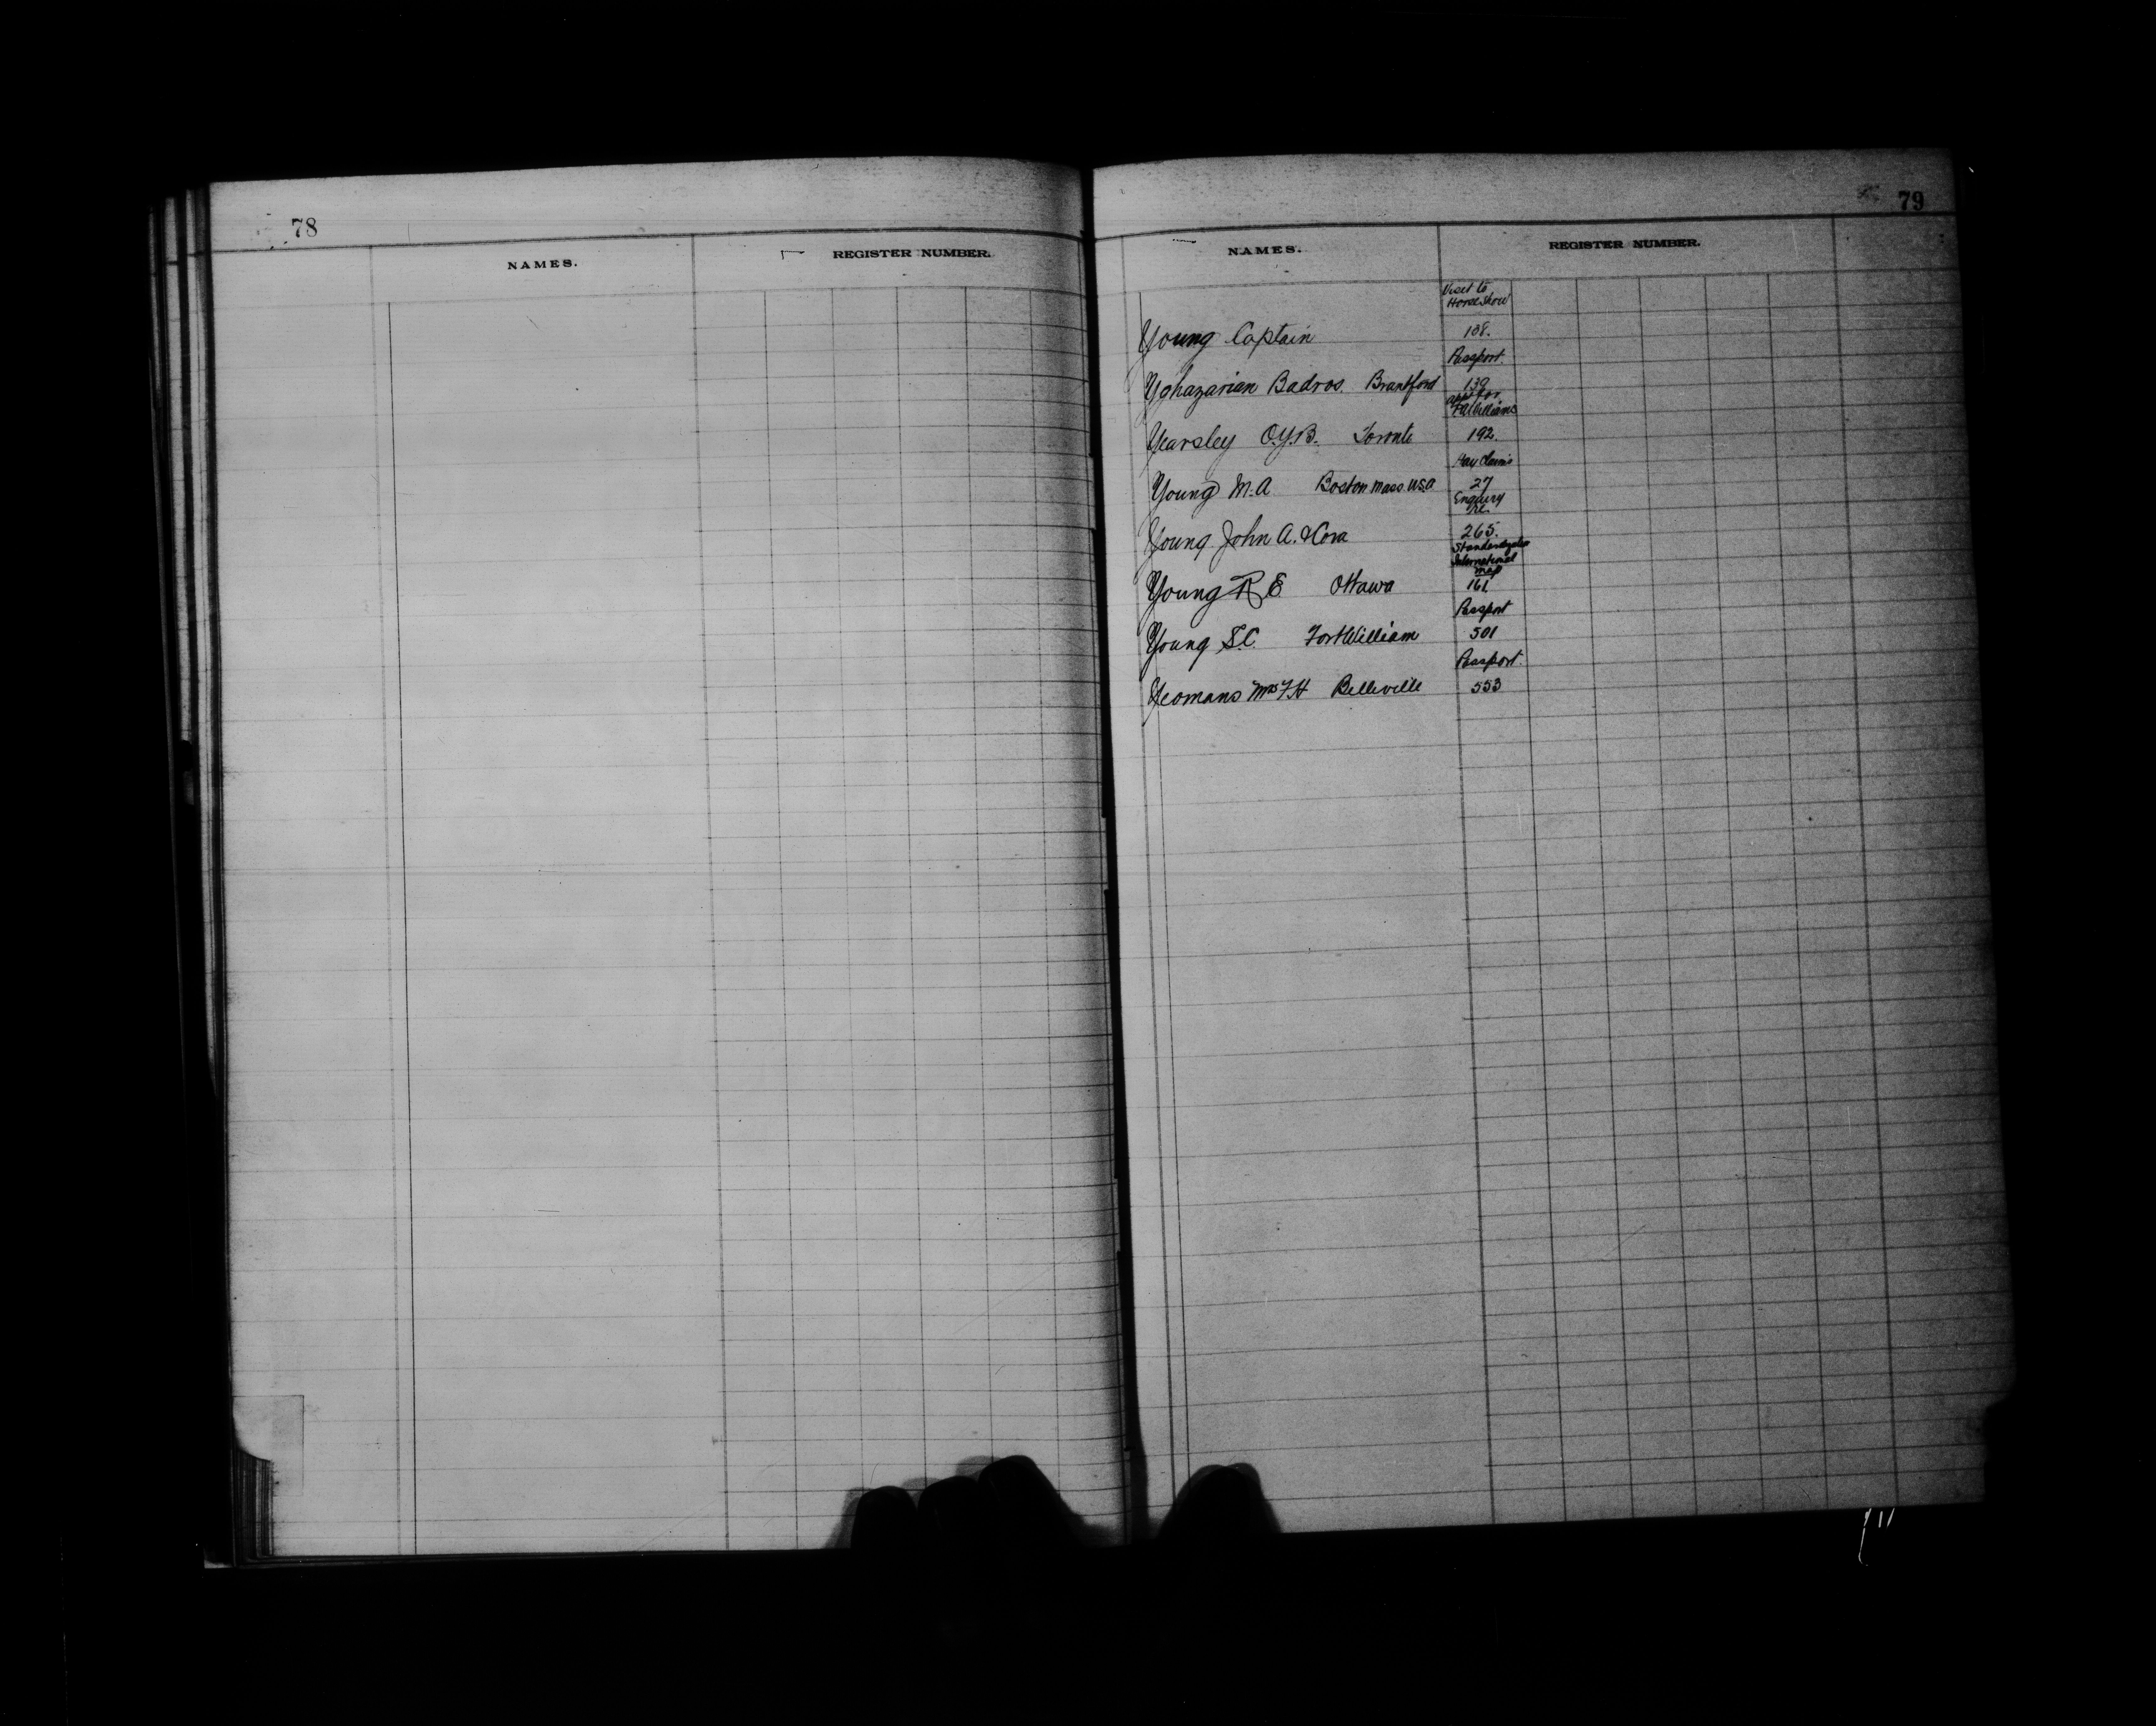 78
NAMES.
REGISTER NUMBER.
79
NAMES.
REGISTER NUMBER.
Visit to
Horse Show
Young Captain 138.
Passport.
Yghazarian Badros. Brantford 139
appt for
Williams
Yearsley O.Y.B. Toronto 192.
Pay Claims
Young M.A. Boston Mass. U.S.A 27
Enquiry
re
Young John A. & Cora 265.
International
map
Young R E Ottawa 161
Passport
Young S.C. Fort William 501
Passport.
Yeomans Mrs F.H Belleville 553